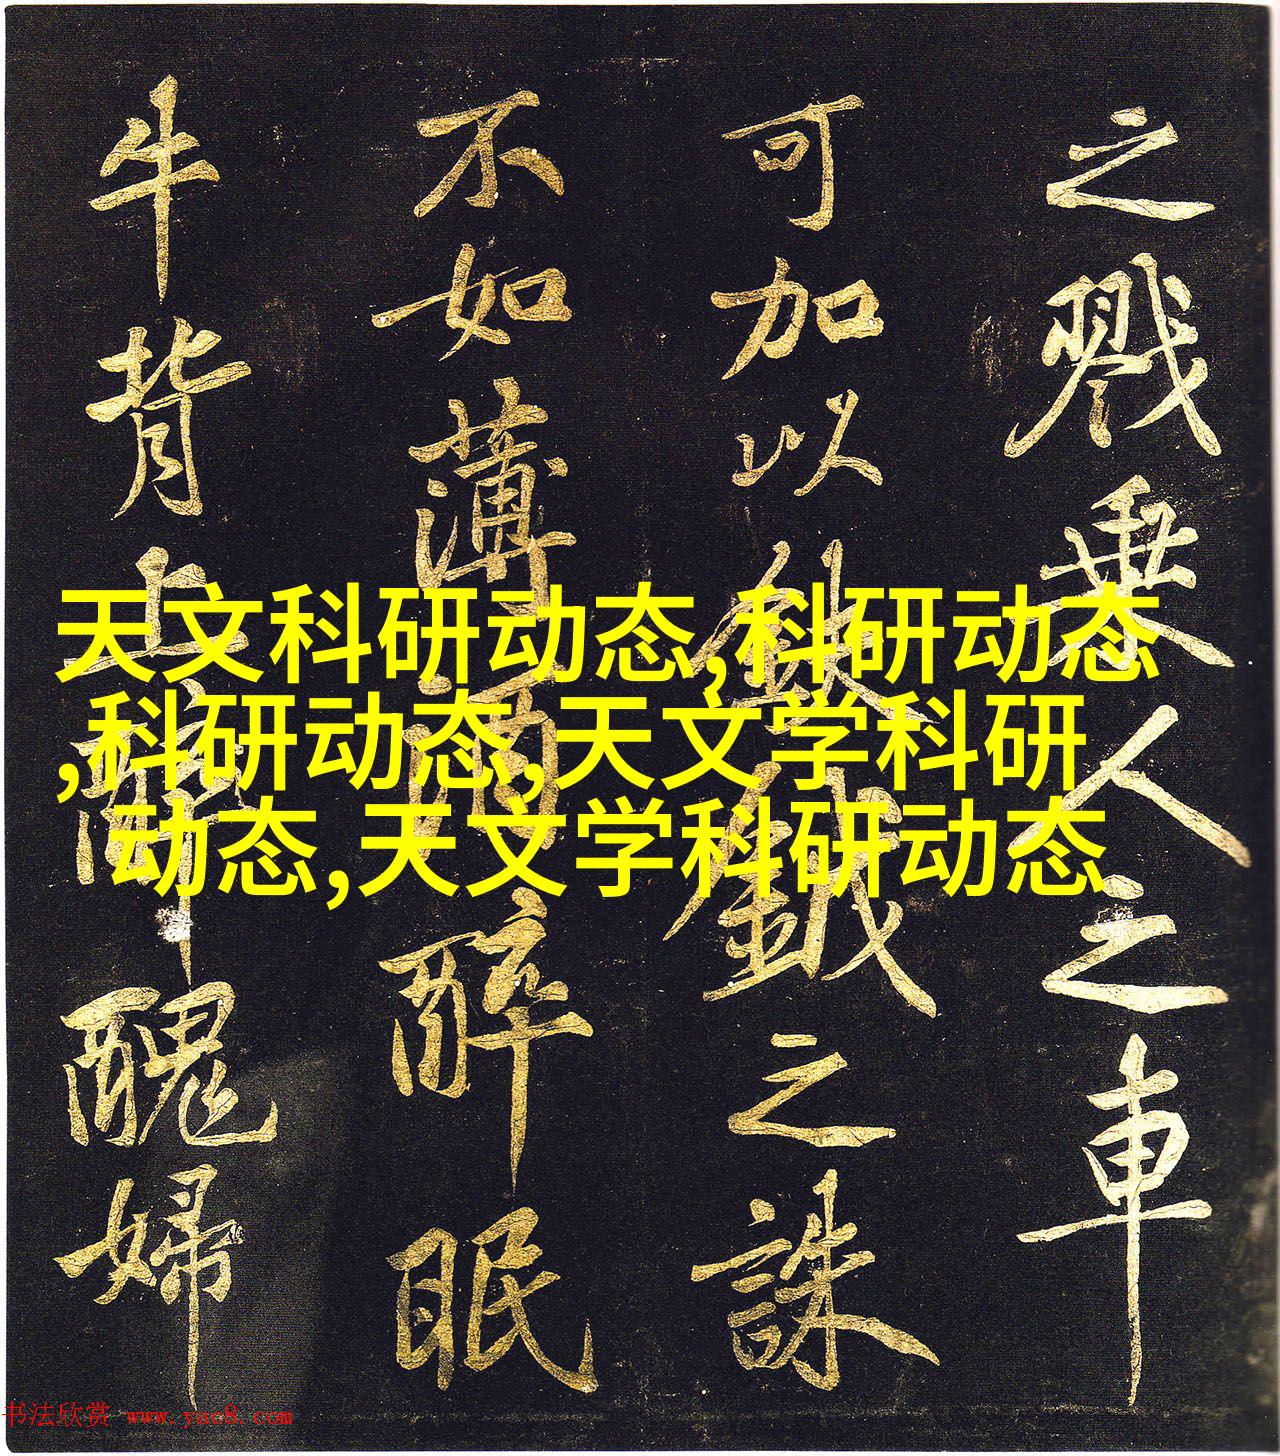 之戮乘人之車
可加以鈇鉞之誅
不如薄酒醉眠
牛背上醉醜婦
天文科研动态,科研动态
,科研动态,天文学科研
动态,天文学科研动态
书法欣赏 www.yac8.com